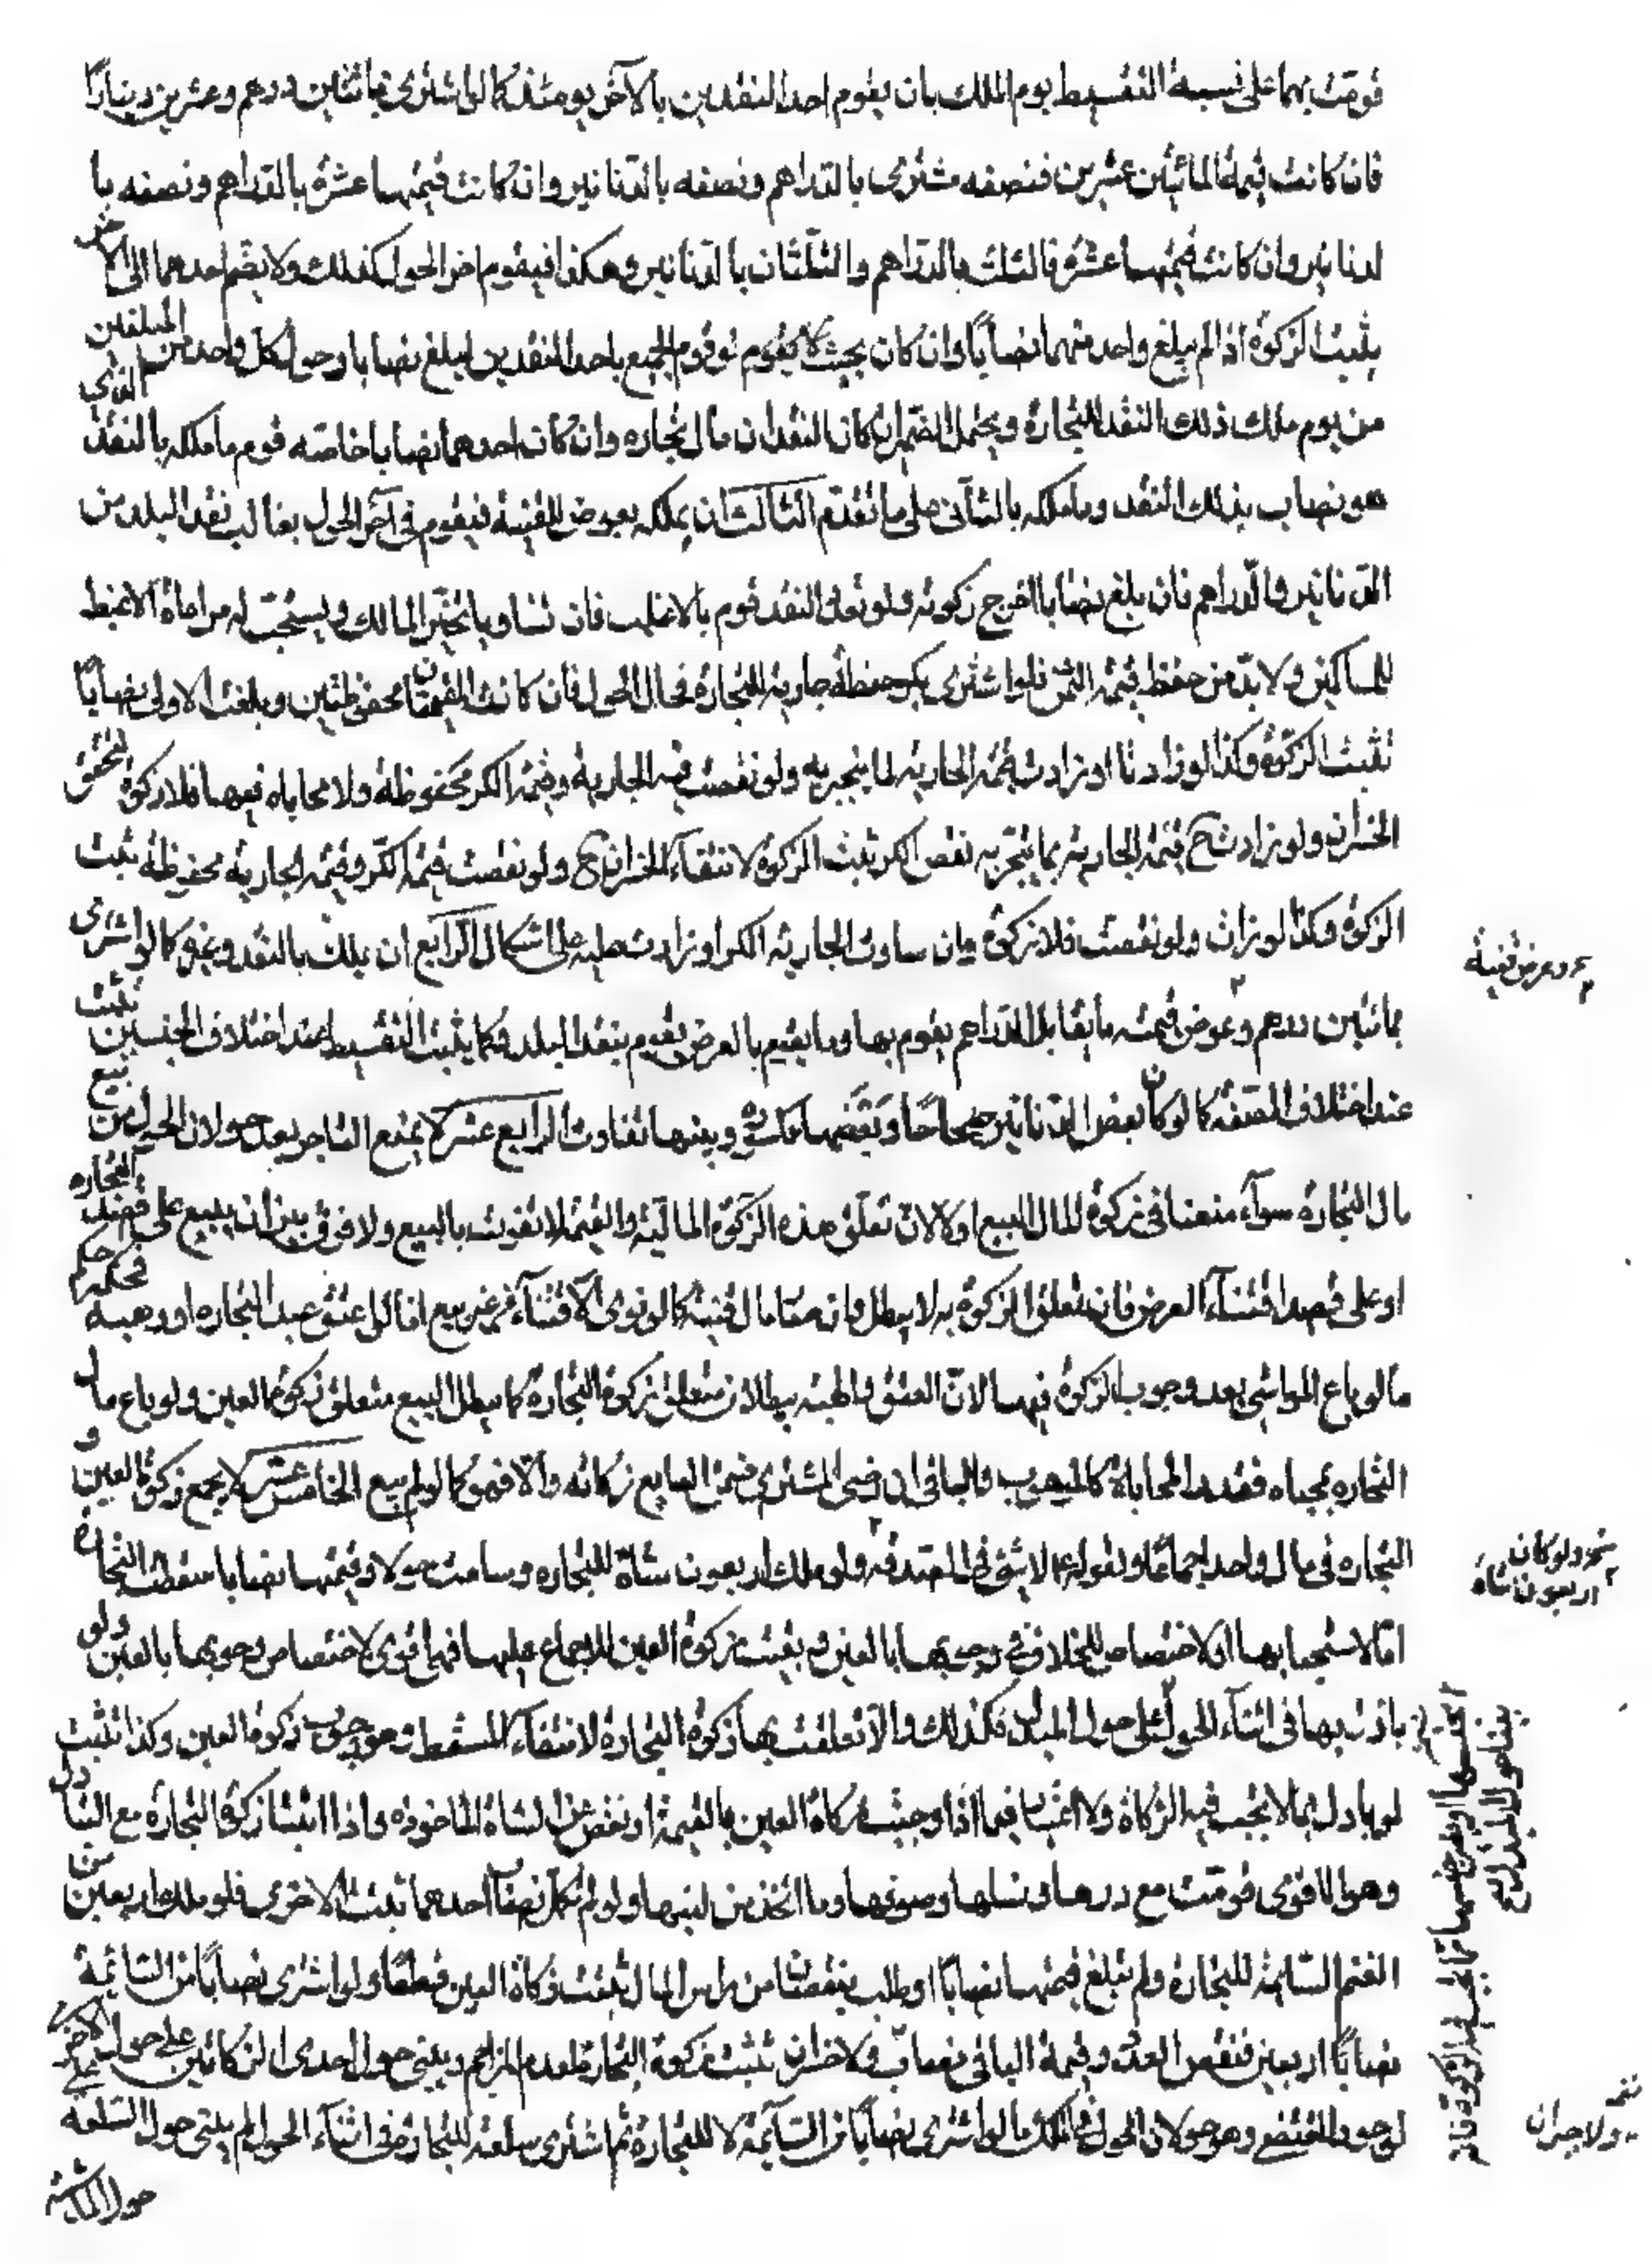 قومت بهما على نسبة التقسيط يوم الملك بان يقوم احد النقدين بالآخر يومئذ كما لو اشترى بمائتين درهم وعشرين دينارا
فان كانت قيمة المائتين عشرين فنصفه مشترى بالدراهم ونصفه بالدنانير وان كانت قيمتها عشرة بالدراهم ونصفه با
لدنانير وان كانت قيمتها عشرة فالثلث بالدراهم والثلثان بالدنانير وهكذا فيقوم اخر الحول كذلك ولا يضم احدهما الى الاخر
يثبت الزكوة اذا لم يبلغ واحد منهما نصابا وان كان بحيث لو قوم الجميع باحد النقدين لبلغ نصابا وحول كل واحد من المبلغين
من يوم ملك ذلك النقد للتجارة ويحتمل الضم ان كان النقدان مال تجاره وان كان احدهما نصابا خاصه قوم ما ملكه بالنقد الذي
هو نصاب بذلك النقد وما ملكه بالثاني على ما تقدم الثالث ان يملكه بعوض للقنية فيقوم في آخر الحول بغالب نقد البلد من
الدنانير والدراهم فان بلغ نصابا اخرج زكوته ولو تعدد النقد قوم بالاغلب فان تساويا تخير المالك ويستحب له مراعاة الاغبط
للمساكين ولا بد من حفظ قيمة الثمن فلو اشترى بكر حنطة جارية للتجارة فحال الحول فان كانت القيمتان محفوظتين وبلغت الاولى نصابا
تثبت الزكوة وكذا لو زادتا او زادت قيمة الجارية لما يتجر به ولو نقصت قيمة الجارية وقيمة الكر محفوظة ولا محاباه فيها فلا زكوة لتحقق
الخسران ولو زادت ح قيمة الجارية بما يتجر به نقص الكر تثبت الزكوة لانتفاء الخسران ح ولو نقصت قيمة الكر وقيمة الجارية محفوظة تثبت
الزكوة وكذا لو زادت ولو نقصت فلا زكوة وان ساوت الجارية الكر او زادت عليه على اشكال الرابع ان يملك بالنقد وغيره كما لو اشترى
بمائتين درهم وعرض قيمته ما يقابل الدراهم يقوم بها وما يقيم بالعرض يقوم بنقد البلد وكما يثبت التقسيط عند اختلاف الجنسين تثبت
عند اختلاف الصفة كما لو كان بعض الدنانير صحاحا وبعضها مكسرة وبينها تفاوت الرابع عشر لا يمنع التاجر بعد حولان الحول من بيع
مال التجاره سواء منعنا في زكوة المال البيع او لا لان تعلق هذه الزكوة المالية والقيمة لا تفوت بالبيع ولا فرق بين ان يبيع على قصد التجاره
او على قصد اقتناء العرض فان تعلق الزكوة به لا يبطل وان صار مال قنية كما لو نوى الاقتناء من غير بيع اما لو اعتق عبد التجاره او وهبه فحكمه حكم
ما لو باع المواشي بعد وجوب الزكوة فيها لان العتق والهبة يبطلان متعلق زكوة التجارة كما يبطل البيع متعلق زكوة العين ولو باع مال
التجاره بمحاباه فقدر المحاباة كالموهوب والباقي ان رضي المشتري ضمن البايع زكاته والا فهو كما لو لم يبع الخامس عشر لا يجمع زكوة العين و
التجاره في مال واحد اجماعا ولقوله ع لا ثنى في الصدقه ولو ملك اربعون شاة للتجاره وسامت حولا وقيمتها نصابا سقطت التجارة
اما الاستحبابها او لاختصاص الخلاف في وجوبها بالعين وبقيت زكوة العين للاجماع عليها فهي اقوى لاختصاص وجوبها بالعين ولو
بادرت بها في اثناء الحول على حول المبدل فكذلك والا تعلقت بها زكوة التجارة لانتفاء المسقط وهو وجوب زكوة العين وكذا تثبت
لو بادل بما لا تجب فيه الزكاة ولا اعتبار فيما اذا وجبت زكاة العين بالقيمة او نقص عن الشاة الماخوذه واذا اثبتنا زكوة التجارة مع التبادل
وهو الاقوى قومت مع درها ونسلها وصوفها وما اتخذ من لبنها ولو لم يكمل نصاب احدهما تثبت الاخرى فلو ملك اربعين من
الغنم السائمة للتجارة ولم تبلغ قيمتها نصابا او طلب بنقصان من راس المال تثبت زكاة العين قطعا ولو اشترى نصابا من السائمة
نصابا اربعين فنقص العدد وقيمة الباقي نصاب ولا خسران تثبت زكوة التجارة لعدم المزاحم ويبنى حول احدى الزكاتين على حول الاخرى
لوجود المقتضي وهو حولان الحول في الملك ما لو اشترى نصابا من السائمة لا للتجارة ثم اشترى سلعة للتجارة في اثناء الحول لم يبتن حول السلعة
حول الماشية
وعرض قنية
ولو كان
اربعون شاة
ولا جبران